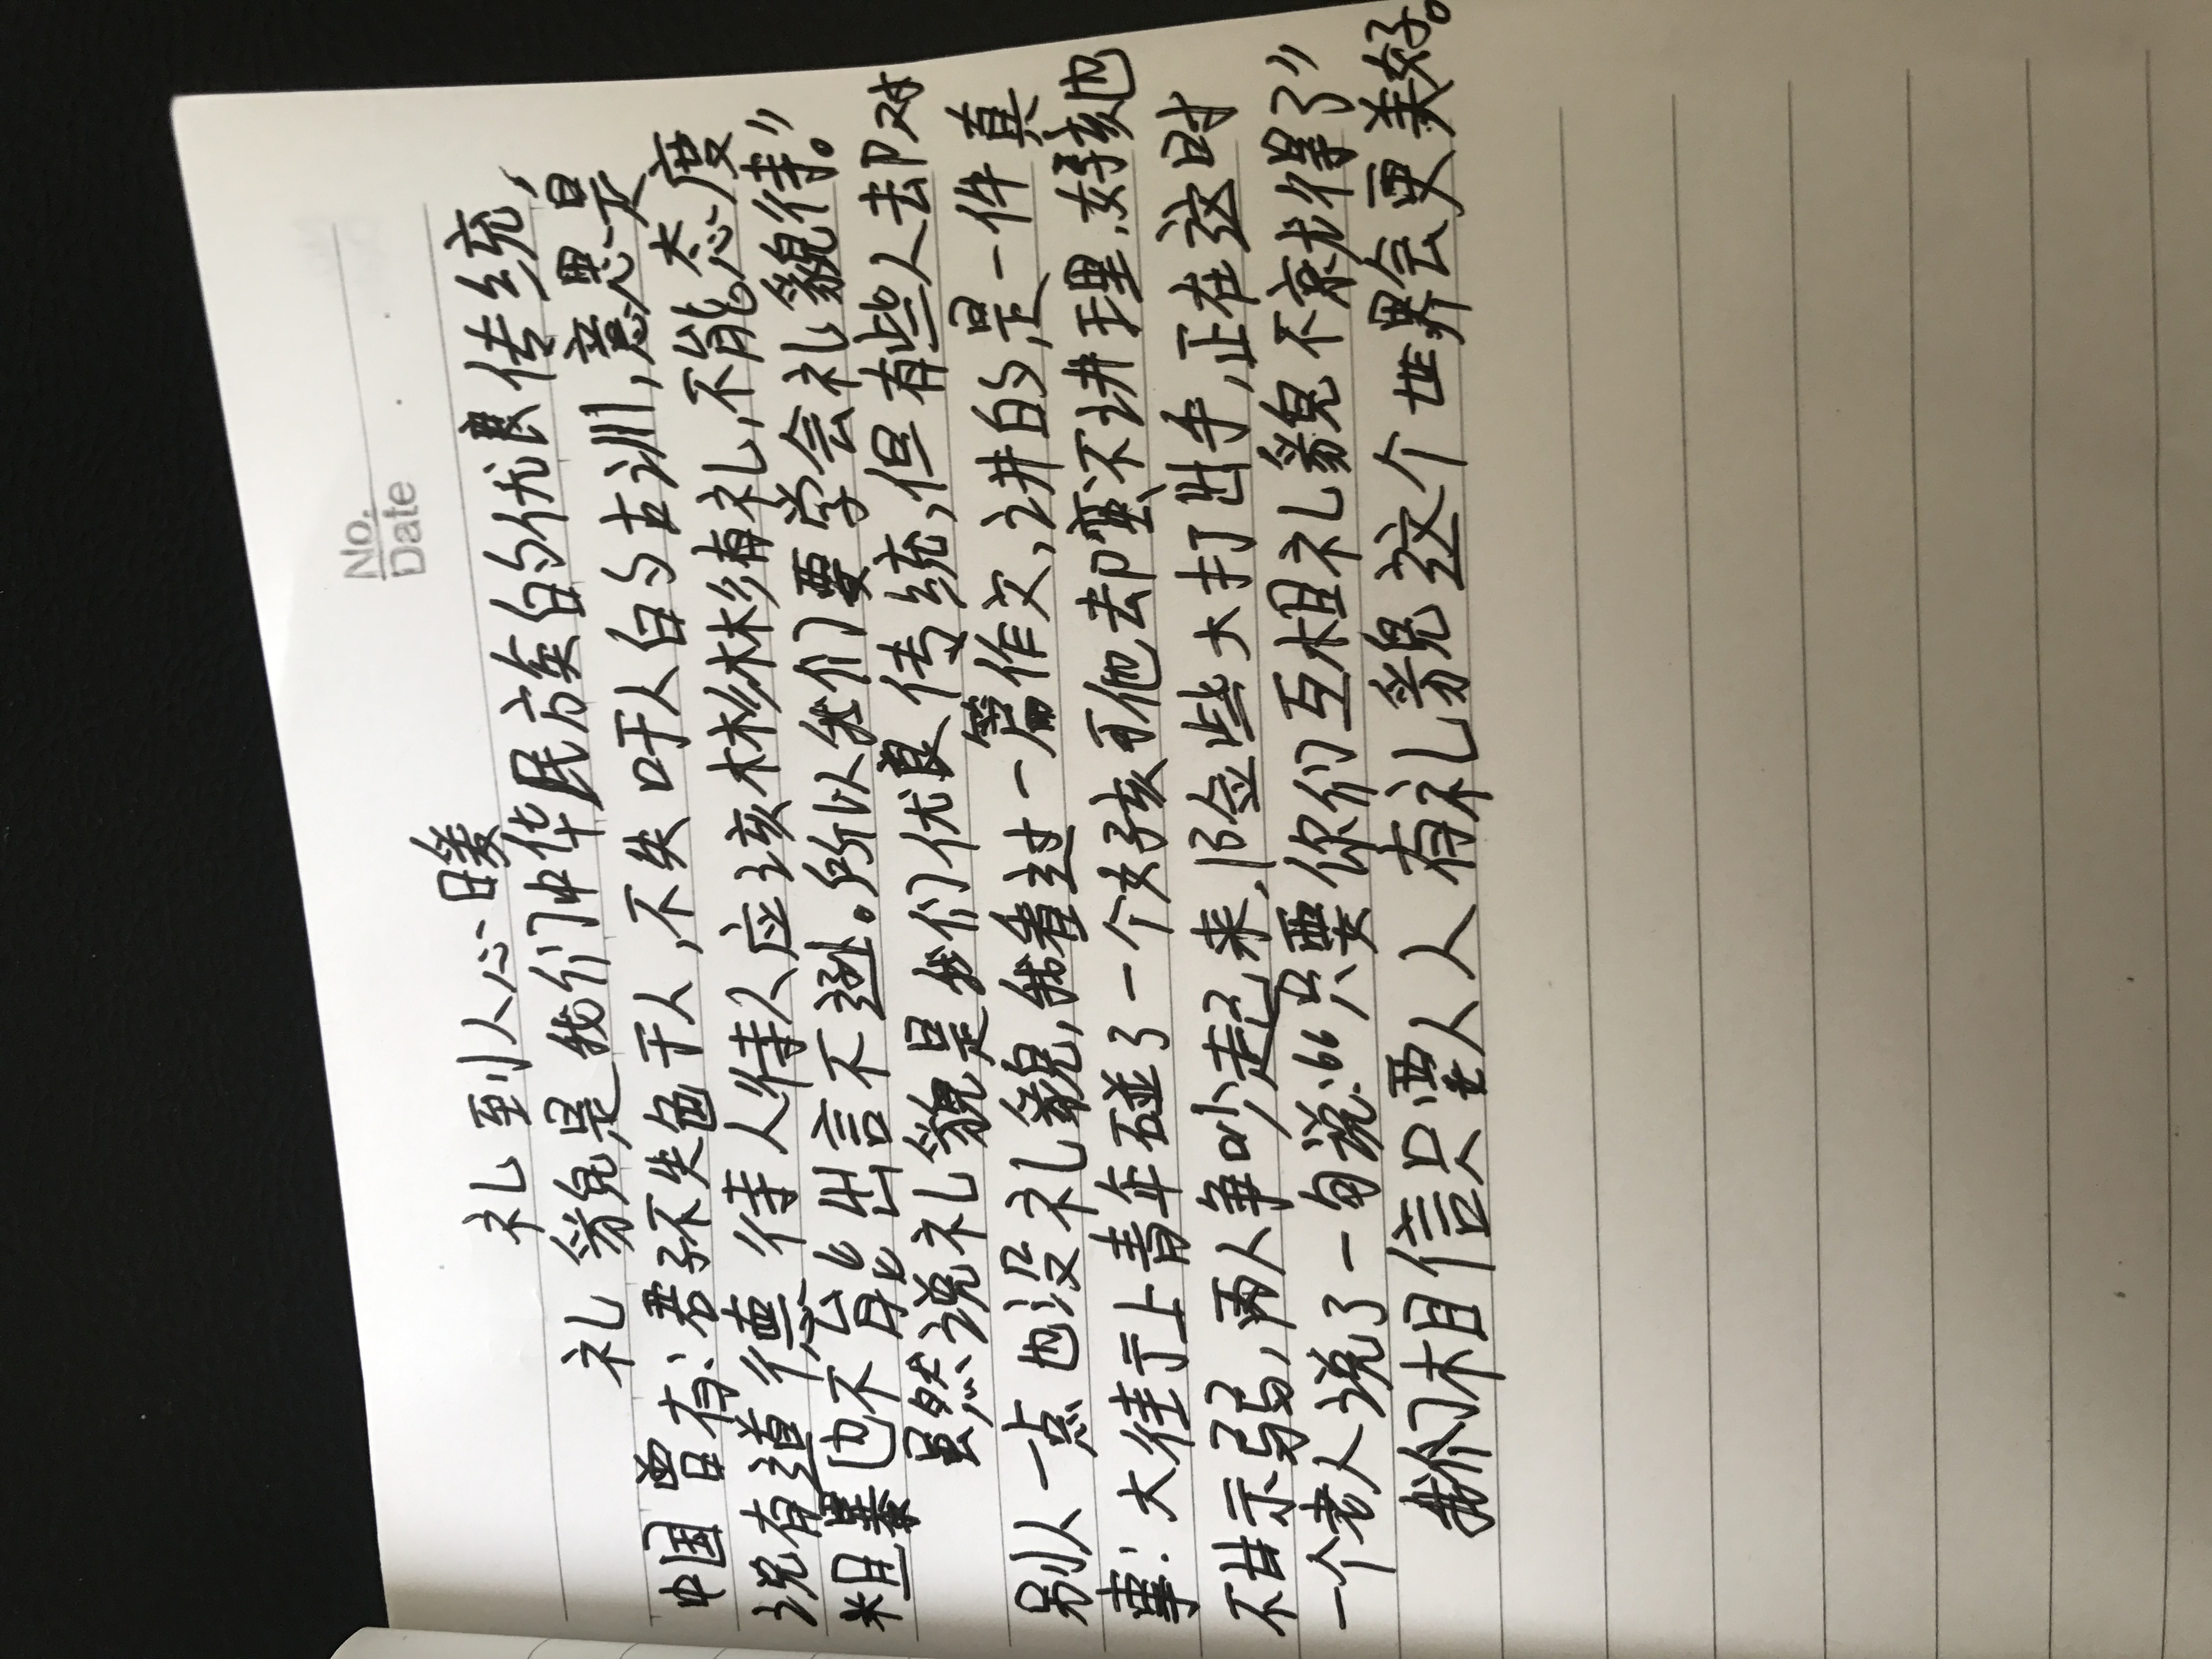 No.
Date
礼到人心暖
礼貌是我们中华民族的优良传统,
中国曾有:君子不失色于人,不失口于人的古训,意思是
说有道德待人待人应该彬彬有礼,不能态度
粗暴也不能出言不逊。所以我们要学会礼貌待。”
虽然说礼貌是我们优良传统,但有些人去却对
别人一点也没礼貌,我看过一篇作文,讲的是一件真
事:大街上青年碰了一个女孩可他去却蛮不讲理,女孩也
不甘示弱,两人争吵起来,险些大打出手,正在这时
一个老人说了一句说:“只要你们互相礼貌不京尤得了”
我们相信只要人人有礼貌这个世界会更美好。